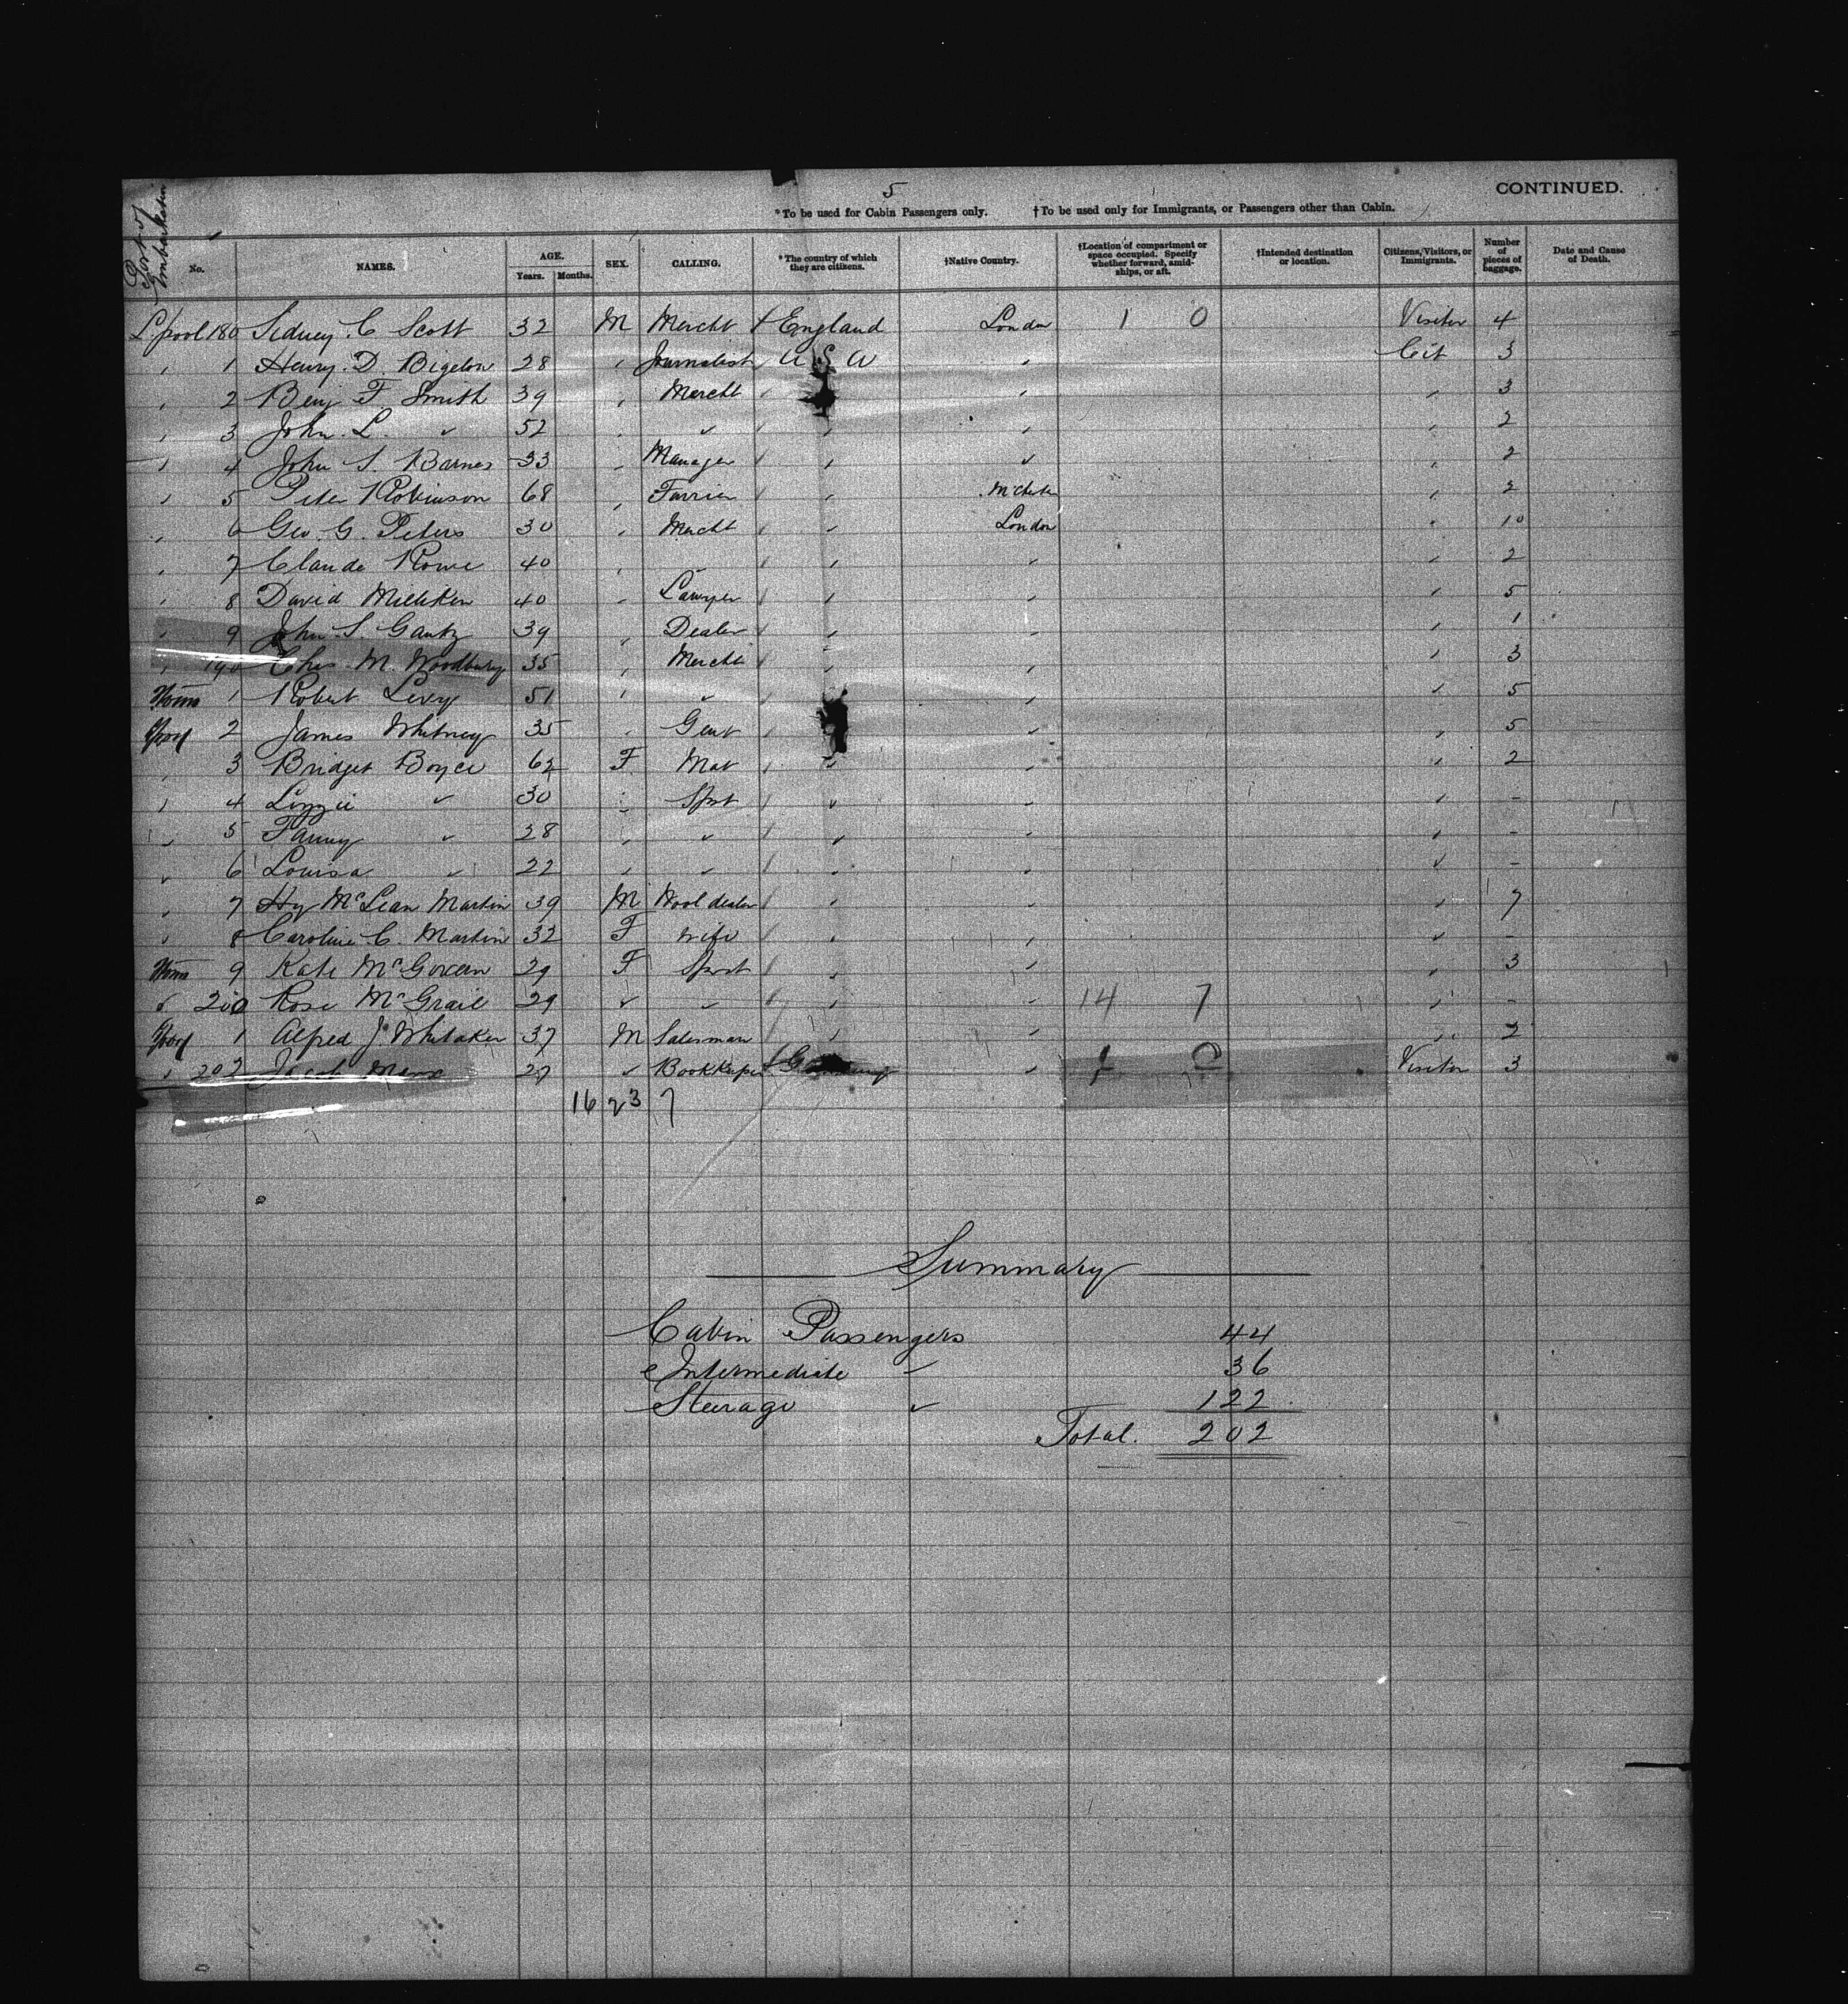 5
CONTINUED.
*To be used for Cabin Passengers only. †To be used only for Immigrants, or Passengers other than Cabin.
Port of Embarkation No. NAMES. AGE. Years. Months. SEX. CALLING. *The country of which they are citizens. †Native Country. †Location of compartment or space occupied. Specify whether forward, amidships, or aft. †Intended destination or location. Citizens, Visitors, or Immigrants. Number of pieces of baggage. Date and Cause of Death.
L'pool 180 Sidney C Scott 32 M Mercht England London 1 0 Visitor 4
" 1 Henry D. Bigelow 28 " Journalist U S A " Cit 3
" 2 Benj F Smith 39 " Mercht " " " 3
" 3 John L. " 52 " " " " " 2
" 4 John S. Barnes 33 " Manager " " " 2
" 5 Peter Robinson 68 " Farrier " M'chester " 2
" 6 Geo. G. Peters 30 " Mercht " London " 10
" 7 Claude Rowe 40 " " " " " 2
" 8 David Milliken 40 " Lawyer " " " 5
" 9 John S. Gantz 39 " Dealer " " " 1
" 190 Chs M. Woodbury 35 " Mercht " " " 3
1 Robert Levy 51 " " " " " 5
2 James Whitney 35 " Gent " " 5
" 3 Bridget Boyce 62 F Mat " " " 2
" 4 Lizzie " 30 " Spst " " " -
" 5 Fanny " 28 " " " " " -
" 6 Louisa " 22 " " " " " -
" 7 Hy McLean Martin 39 M Wool dealer " " " 7
" 8 Caroline C. Martin 32 F wife " " " -
9 Kate McGovern 29 F Spst " " " 3
" 200 Rose McGrail 29 " " " " 14 7 " -
1 Alfred J. Whitaker 37 M Salesman " " " 2
" 202 Jacob Marx 27 " Bookkeeper Germany " 1 0 Visitor 3
16 23 7
Summary
Cabin Passengers 44
Intermediate " 36
Steerage " 122
Total. 202